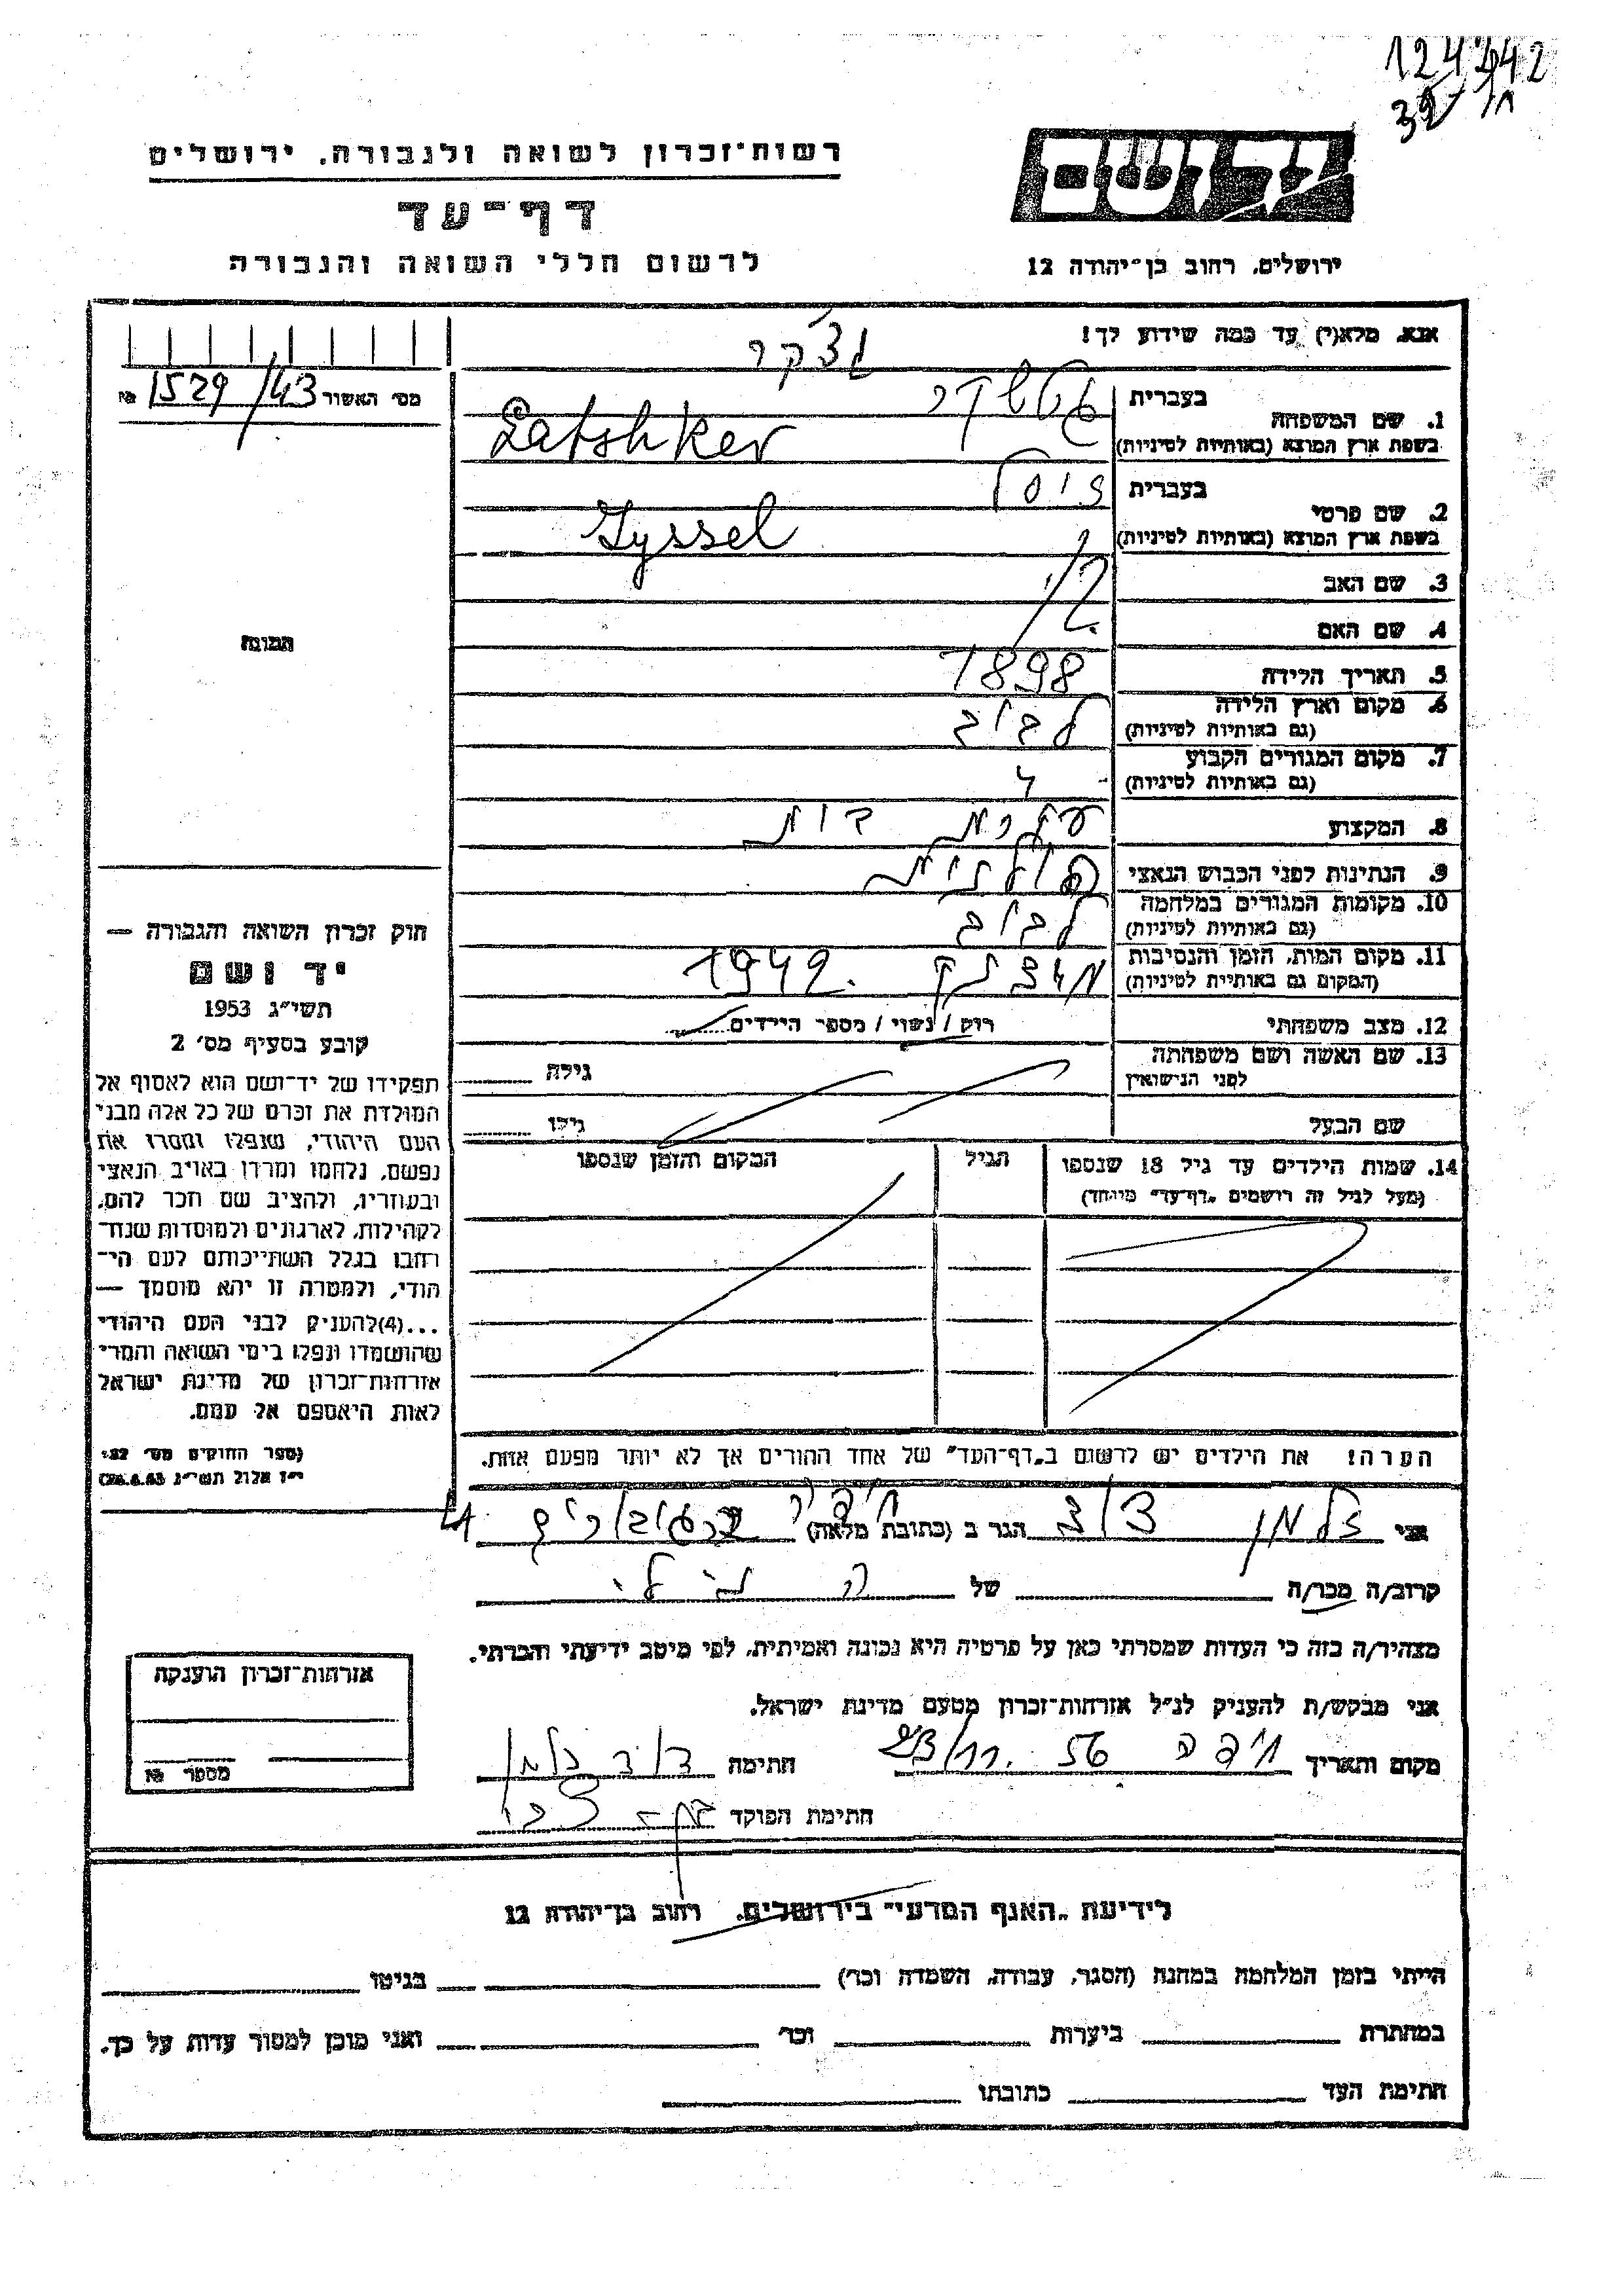 124442
רשות־זכרון לשואה ולגבורה, ירושלים
דף־עד
לרשום חללי השואה והגבורה
יד ושם
ירושלים, רחוב בן־יהודה 12
אנא, מלא(י) עד כמה שידוע לך!
מס׳ האשור 1529/43 №
1. שם המשפחה
בעברית
בשפת ארץ המוצא (באותיות לטיניות) Latshker
2. שם פרטי
בעברית זיסל
בשפת ארץ המוצא (באותיות לטיניות) Zyssel
3. שם האב
4. שם האם
5. תאריך הלידה 1898
6. מקום וארץ הלידה לבוב
(גם באותיות לטיניות)
7. מקום המגורים הקבוע
(גם באותיות לטיניות)
8. המקצוע עקרת בית
9. הנתינות לפני הכבוש הנאצי פולנית
10. מקומות המגורים במלחמה לבוב
(גם באותיות לטיניות)
11. מקום המות, הזמן והנסיבות 1942.
(המקום גם באותיית לטיניות)
12. מצב משפחתי רוק / נשוי / מספר הילדים
13. שם האשה ושם משפחתה גילה
לפני הנישואין
שם הבעל גילו
14. שמות הילדים עד גיל 18 שנספו הגיל המקום והזמן שנספו
(מעל לגיל זה רושמים „דף־עד״ מיוחד)
הערה! את הילדים יש לרשום ב„דף־העד״ של אחד ההורים אך לא יותר מפעם אחת.
תמונה
חוק זכרון השואה והגבורה —
יד ושם
תשי״ג 1953
קובע בסעיף מס׳ 2
תפקידו של יד־ושם הוא לאסוף אל
המולדת את זכרם של כל אלה מבני
העם היהודי, שנפלו ומסרו את
נפשם, נלחמו ומרדו באויב הנאצי
ובעוזריו, ולהציב שם וזכר להם,
לקהילות, לארגונים ולמוסדות שנח־
רחבו בגלל השתייכותם לעם הי־
הודי, ולמטרה זו יהא מוסמך —
...(4) להעניק לבני העם היהודי
שהושמדו ונפלו בימי השואה והמרי
אזרחות־זכרון של מדינת ישראל
לאות היאספם אל עמם.
(ספר החוקים מס׳ 132
י״ז אלול תשי״ג 28.8.53)
אני זלמן דוד הגר ב (כתובת מלאה) חיפה
קרוב/ה מכר/ה של
מצהיר/ה בזה כי העדות שמסרתי כאן על פרטיה היא נכונה ואמיתית, לפי מיטב ידיעתי והכרתי.
אני מבקש/ת להעניק לנ״ל אזרחות־זכרון מטעם מדינת ישראל.
מקום ותאריך חיפה 56 חתימה דוד זלמן
חתימת הפוקד
אזרחות־זכרון הוענקה
מספר №
לידיעת „האגף המדעי״ בירושלים, רחוב בן־יהודה 12
הייתי בזמן המלחמה במחנה (הסגר, עבודה, השמדה וכר׳) בגיטו
במחתרת ביערות וכר׳ ואני מוכן למסור עדות על כך.
חתימת העד כתובתו